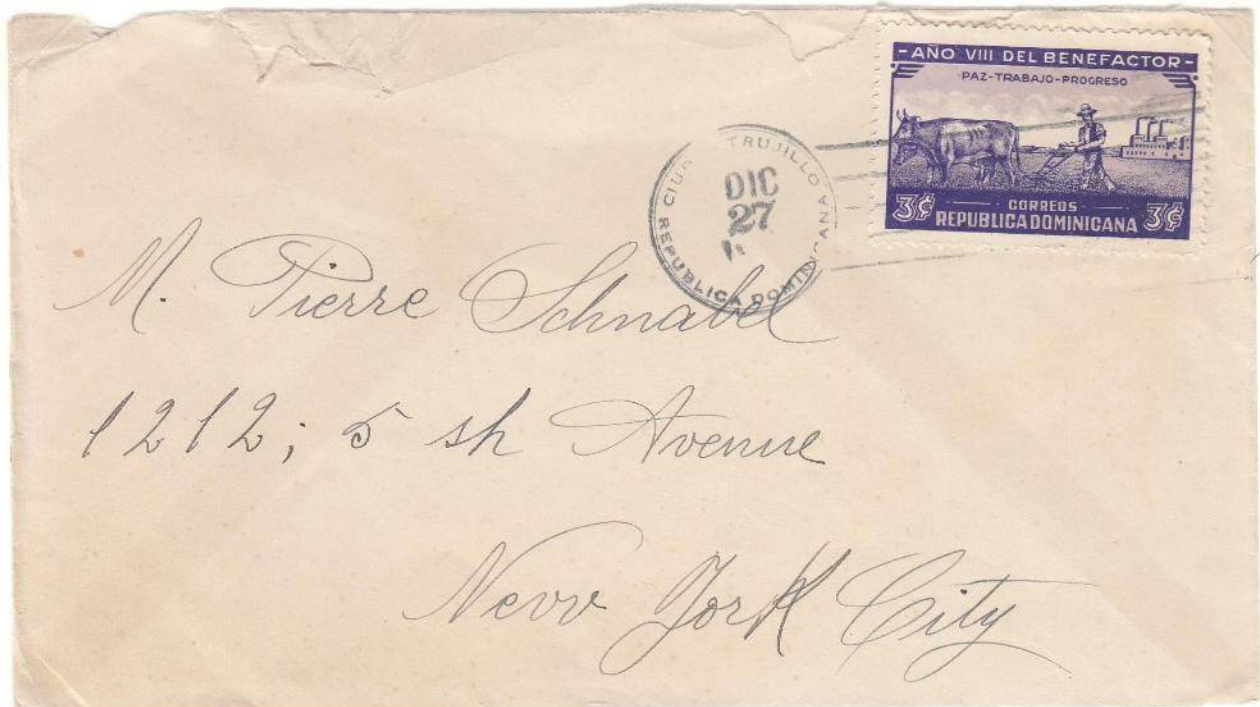 - AÑO VIII DEL BENEFACTOR -
PAZ-TRABAJO-PROGRESO
3¢ CORREOS 3¢
REPUBLICA DOMINICANA
TRUJILLO
DIC
27
REPUBLICA DOMINICANA
M. Pierre Schnabel
1212; 5 sh Avenue
New York City